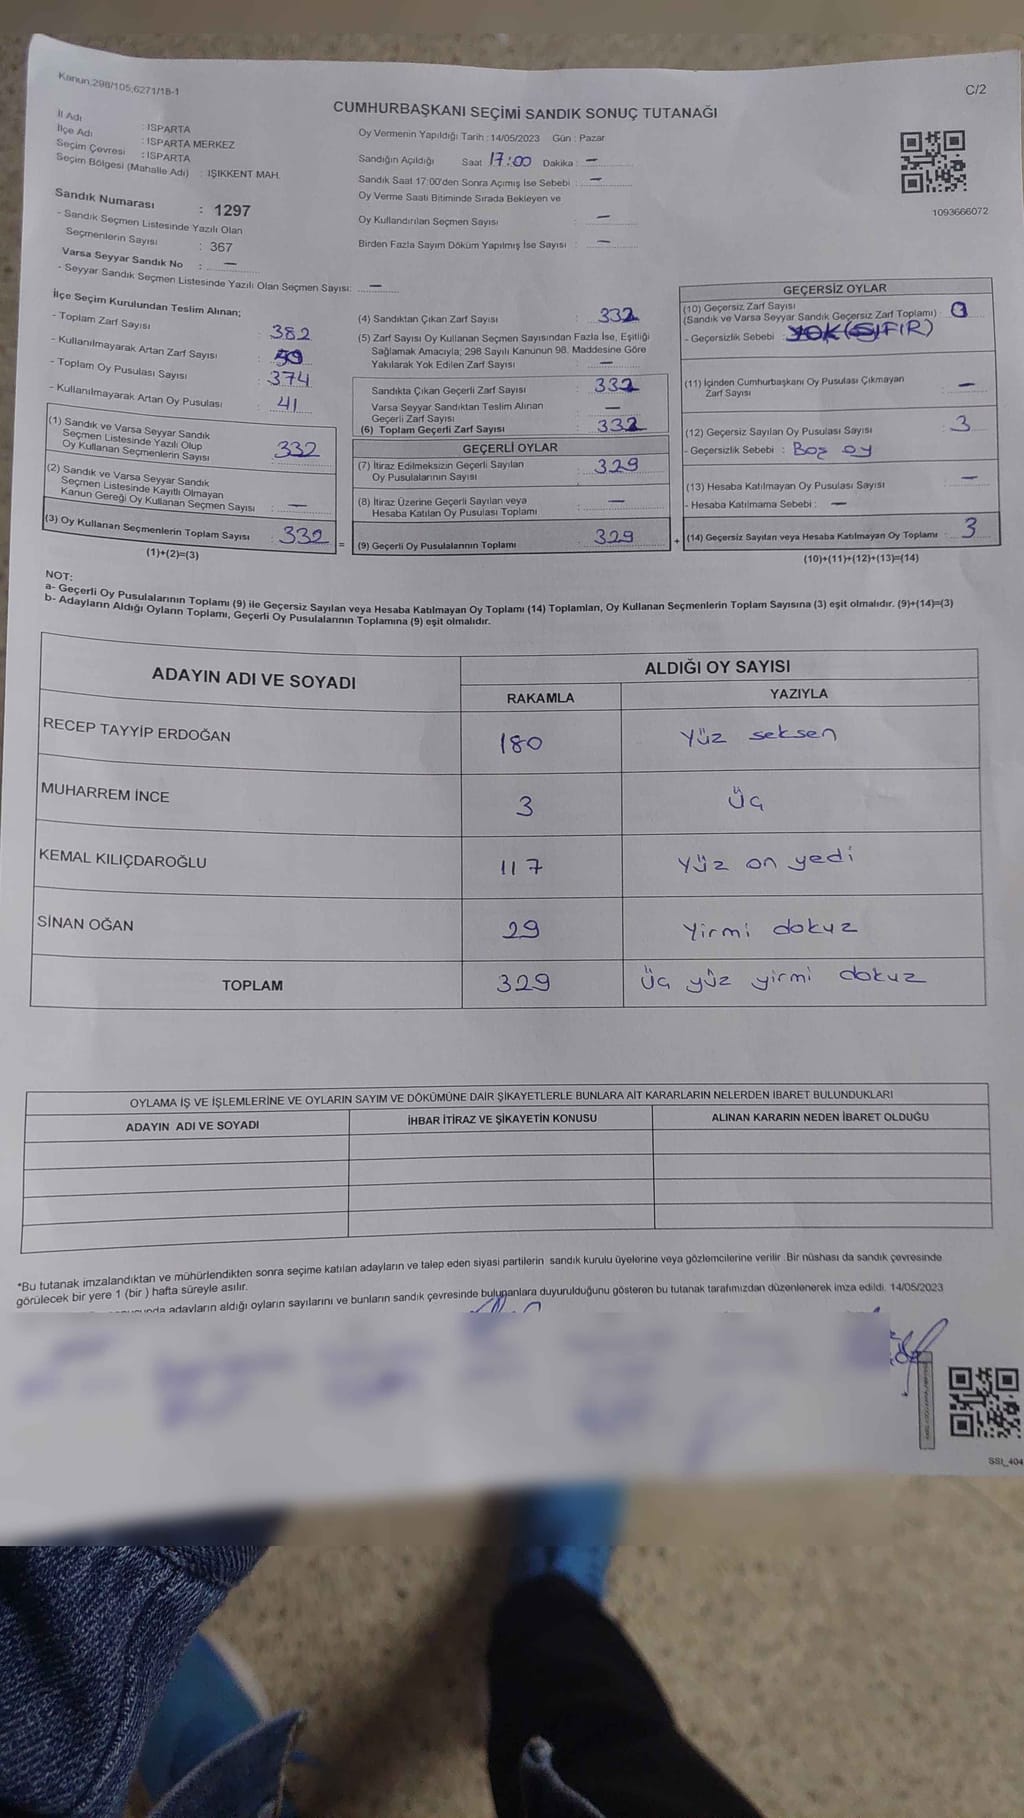 Kanun:298/105,6271/18-1
C/2
CUMHURBAŞKANI SEÇİMİ SANDIK SONUÇ TUTANAĞI
İl Adı : ISPARTA
İlçe Adı : ISPARTA MERKEZ
Seçim Çevresi : ISPARTA
Seçim Bölgesi (Mahalle Adı) : IŞIKKENT MAH.
Sandık Numarası : 1297
- Sandık Seçmen Listesinde Yazılı Olan
Seçmenlerin Sayısı : 367
Varsa Seyyar Sandık No : —
- Seyyar Sandık Seçmen Listesinde Yazılı Olan Seçmen Sayısı: —
Oy Vermenin Yapıldığı Tarih : 14/05/2023 Gün : Pazar
Sandığın Açıldığı Saat 17:00 Dakika : —
Sandık Saat 17:00'den Sonra Açımış İse Sebebi : —
Oy Verme Saati Bitiminde Sırada Bekleyen ve
Oy Kullandırılan Seçmen Sayısı : —
Birden Fazla Sayım Döküm Yapılmış İse Sayısı : —
1093666072
İlçe Seçim Kurulundan Teslim Alınan;
- Toplam Zarf Sayısı : 382
- Kullanılmayarak Artan Zarf Sayısı :
- Toplam Oy Pusulası Sayısı : 374
- Kullanılmayarak Artan Oy Pusulası : 41
(1) Sandık ve Varsa Seyyar Sandık
Seçmen Listesinde Yazılı Olup
Oy Kullanan Seçmenlerin Sayısı : 332
(2) Sandık ve Varsa Seyyar Sandık
Seçmen Listesinde Kayıtlı Olmayan
Kanun Gereği Oy Kullanan Seçmen Sayısı : —
(3) Oy Kullanan Seçmenlerin Toplam Sayısı : 332
(1)+(2)=(3)
=
(4) Sandıktan Çıkan Zarf Sayısı : 332
(5) Zarf Sayısı Oy Kullanan Seçmen Sayısından Fazla İse, Eşitliği
Sağlamak Amacıyla; 298 Sayılı Kanunun 98. Maddesine Göre
Yakılarak Yok Edilen Zarf Sayısı : —
Sandıkta Çıkan Geçerli Zarf Sayısı : 332
Varsa Seyyar Sandıktan Teslim Alınan
Geçerli Zarf Sayısı : —
(6) Toplam Geçerli Zarf Sayısı : 332
GEÇERLİ OYLAR
(7) İtiraz Edilmeksizin Geçerli Sayılan
Oy Pusulalarının Sayısı : 329
(8) İtiraz Üzerine Geçerli Sayılan veya
Hesaba Katılan Oy Pusulası Toplamı : —
(9) Geçerli Oy Pusulalarının Toplamı : 329
+
GEÇERSİZ OYLAR
(10) Geçersiz Zarf Sayısı
(Sandık ve Varsa Seyyar Sandık Geçersiz Zarf Toplamı) : 0
- Geçersizlik Sebebi : YOK (SIFIR)
(11) İçinden Cumhurbaşkanı Oy Pusulası Çıkmayan
Zarf Sayısı : —
(12) Geçersiz Sayılan Oy Pusulası Sayısı : 3
- Geçersizlik Sebebi : Boş oy
(13) Hesaba Katılmayan Oy Pusulası Sayısı : —
- Hesaba Katılmama Sebebi : —
(14) Geçersiz Sayılan veya Hesaba Katılmayan Oy Toplamı : 3
(10)+(11)+(12)+(13)=(14)
NOT:
a- Geçerli Oy Pusulalarının Toplamı (9) ile Geçersiz Sayılan veya Hesaba Katılmayan Oy Toplamı (14) Toplamları, Oy Kullanan Seçmenlerin Toplam Sayısına (3) eşit olmalıdır. (9)+(14)=(3)
b- Adayların Aldığı Oyların Toplamı, Geçerli Oy Pusulalarının Toplamına (9) eşit olmalıdır.
ADAYIN ADI VE SOYADI ALDIĞI OY SAYISI
RAKAMLA YAZIYLA
RECEP TAYYİP ERDOĞAN 180 Yüz seksen
MUHARREM İNCE 3 Üç
KEMAL KILIÇDAROĞLU 117 Yüz on yedi
SİNAN OĞAN 29 Yirmi dokuz
TOPLAM 329 Üç yüz yirmi dokuz
OYLAMA İŞ VE İŞLEMLERİNE VE OYLARIN SAYIM VE DÖKÜMÜNE DAİR ŞİKAYETLERLE BUNLARA AİT KARARLARIN NELERDEN İBARET BULUNDUKLARI
ADAYIN ADI VE SOYADI İHBAR İTİRAZ VE ŞİKAYETİN KONUSU ALINAN KARARIN NEDEN İBARET OLDUĞU
*Bu tutanak imzalandıktan ve mühürlendikten sonra seçime katılan adayların ve talep eden siyasi partilerin sandık kurulu üyelerine veya gözlemcilerine verilir .Bir nüshası da sandık çevresinde
görülecek bir yere 1 (bir ) hafta süreyle asılır.
adayların aldığı oyların sayılarını ve bunların sandık çevresinde bulunanlara duyurulduğunu gösteren bu tutanak tarafımızdan düzenlenerek imza edildi. 14/05/2023
SSI_404